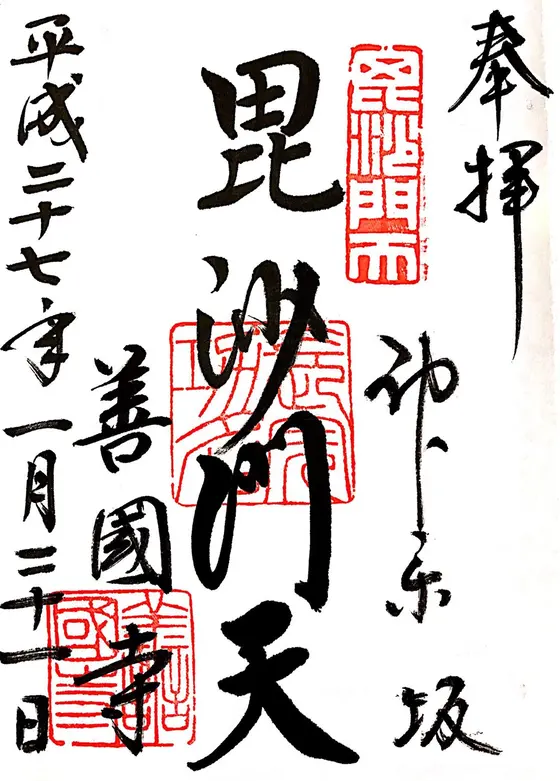 奉拝
神楽坂
毘沙門天
毘沙門天
善國寺
平成二十七年一月二十一日